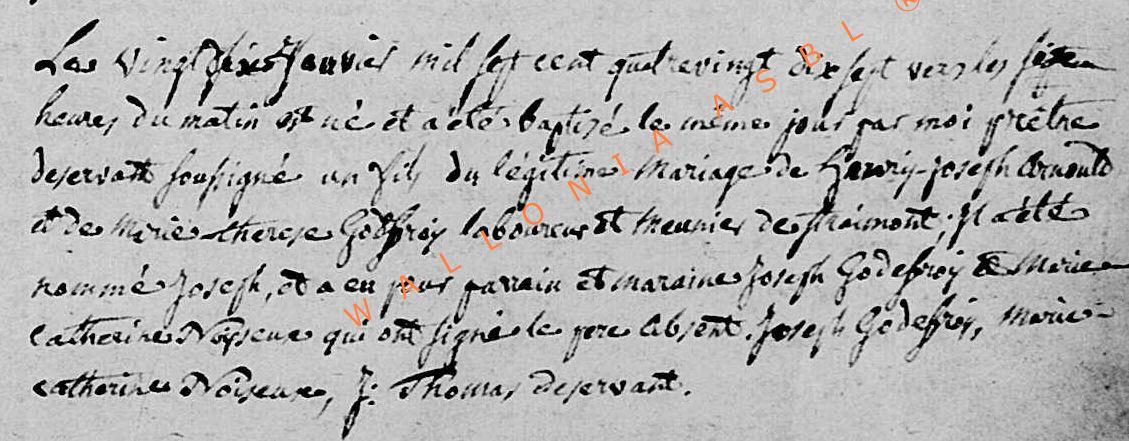 Le vingt six Janvier mil sept cent quatrevingt dix sept vers les six
heures du matin est né et a été baptizé le même jour par moi prêtre
deservant soussigné un fils du légitime mariage de Henry-joseph Arnould
et de Marie therese Godfroy laboureur et meunier de straimont; Il a été
nommé Joseph, et a eu pour parrain et maraine Joseph Godefroy et Marie
catherine Noiseux qui ont signé le pere absent. Joseph Godefroy, Marie-
catherine Noiseux, J: Thomas deservant.
WALLONIA ASBL ®